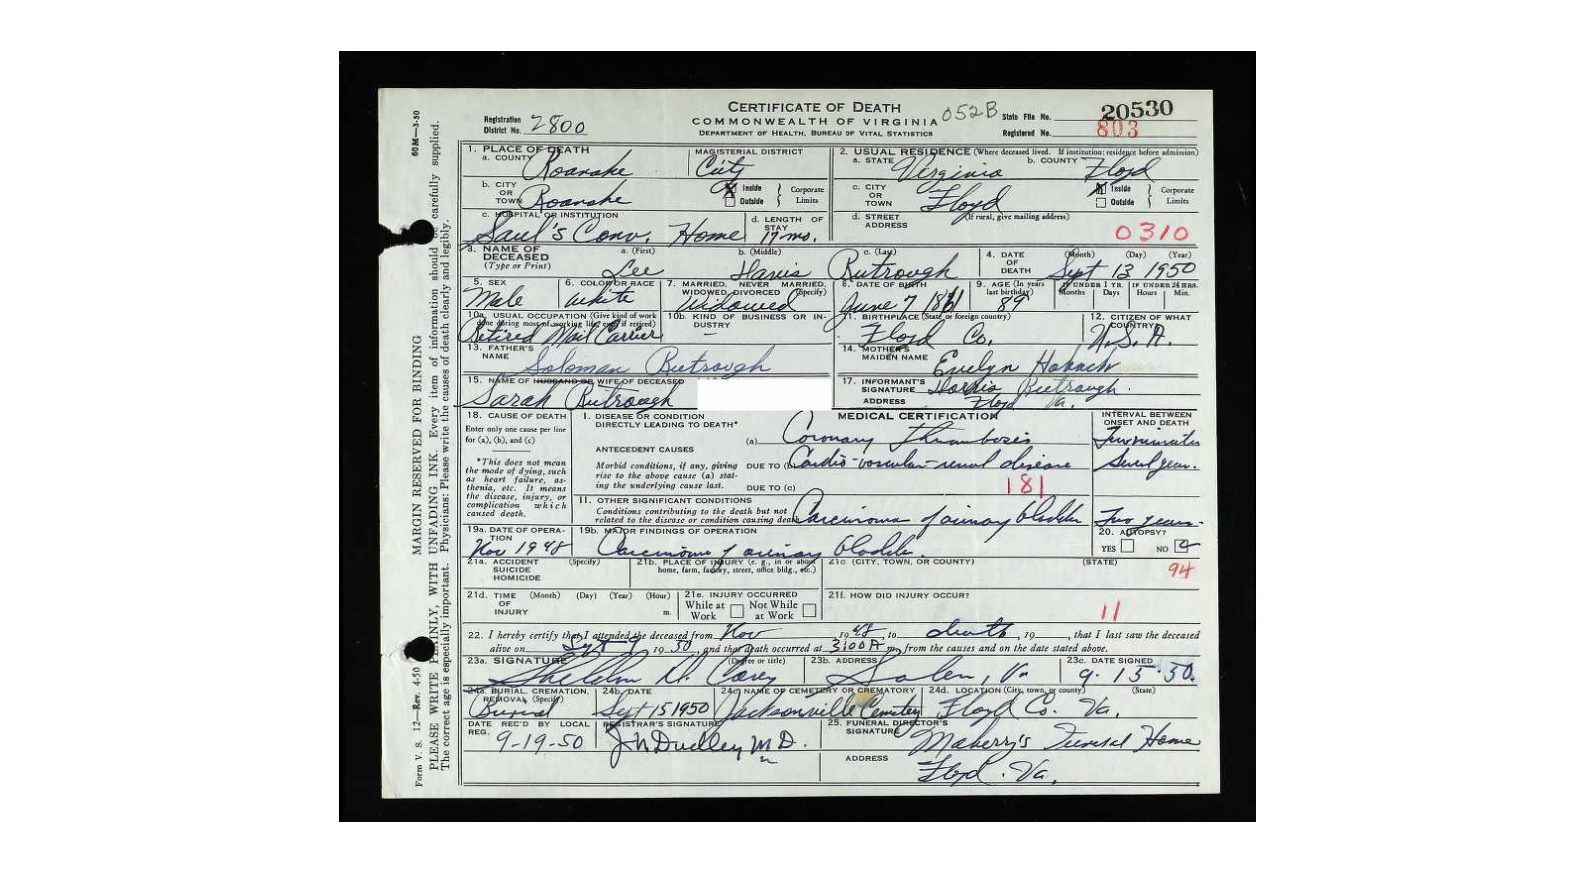 CERTIFICATE OF DEATH
COMMONWEALTH OF VIRGINIA
DEPARTMENT OF HEALTH, BUREAU OF VITAL STATISTICS
052B
Registration District No. 2800
State File No. 20530
Registered No. 803
60M—3-50
MARGIN RESERVED FOR BINDING
PLEASE WRITE PLAINLY, WITH UNFADING INK. Every item of information should be carefully supplied.
The correct age is especially important. Physicians: Please write the causes of death clearly and legibly.
Form V. S. 12—Rev. 4-50
1. PLACE OF DEATH
a. COUNTY Roanoke
MAGISTERIAL DISTRICT City
2. USUAL RESIDENCE (Where deceased lived. If institution: residence before admission)
a. STATE Virginia b. COUNTY Floyd
b. CITY OR TOWN Roanoke
X Inside Outside Corporate Limits
c. CITY OR TOWN Floyd
X Inside Outside Corporate Limits
c. HOSPITAL OR INSTITUTION Saul's Conv. Home
d. LENGTH OF STAY 17 mo.
d. STREET ADDRESS (If rural, give mailing address)
0310
3. NAME OF DECEASED (Type or Print)
a. (First) Lee b. (Middle) Harris c. (Last)
4. DATE OF DEATH (Month) (Day) (Year) Sept 13 1950
5. SEX Male
6. COLOR OR RACE White
7. MARRIED, NEVER MARRIED, WIDOWED, DIVORCED (Specify) Widowed
8. DATE OF BIRTH June 7 1861
9. AGE (In years last birthday) 89
IF UNDER 1 YR. Months Days IF UNDER 24 HRS. Hours Min.
10a. USUAL OCCUPATION (Give kind of work done during most of working life, even if retired) Retired Mail Carrier
10b. KIND OF BUSINESS OR INDUSTRY –
11. BIRTHPLACE (State or foreign country) Floyd Co.
12. CITIZEN OF WHAT COUNTRY? U.S.A.
13. FATHER'S NAME Soloman
14. MOTHER'S MAIDEN NAME Evelyn
15. NAME OF HUSBAND OR WIFE OF DECEASED Sarah
17. INFORMANT'S SIGNATURE
ADDRESS Floyd Va.
18. CAUSE OF DEATH
Enter only one cause per line for (a), (b), and (c)
*This does not mean the mode of dying, such as heart failure, asthenia, etc. It means the disease, injury, or complication which caused death.
MEDICAL CERTIFICATION
INTERVAL BETWEEN ONSET AND DEATH
I. DISEASE OR CONDITION DIRECTLY LEADING TO DEATH*
(a) Coronary Thrombosis Few minutes
ANTECEDENT CAUSES
Morbid conditions, if any, giving rise to the above cause (a) stating the underlying cause last.
DUE TO (b) Cardio-vascular-renal disease Several years.
DUE TO (c)
181
II. OTHER SIGNIFICANT CONDITIONS
Conditions contributing to the death but not related to the disease or condition causing death. Carcinoma of urinary bladder Two years.
19a. DATE OF OPERATION Nov 1948
19b. MAJOR FINDINGS OF OPERATION Carcinoma of urinary bladder.
20. AUTOPSY? YES NO
21a. ACCIDENT SUICIDE HOMICIDE (Specify)
21b. PLACE OF INJURY (e. g., in or about home, farm, factory, street, office bldg., etc.)
21c (CITY, TOWN, OR COUNTY) (STATE)
94
21d. TIME OF INJURY (Month) (Day) (Year) (Hour) m.
21e. INJURY OCCURRED While at Work Not While at Work
21f. HOW DID INJURY OCCUR?
11
22. I hereby certify that I attended the deceased from Nov 1948, to death, 19 , that I last saw the deceased
alive on Sept 9 1950, and that death occurred at 3:00 A m., from the causes and on the date stated above.
23a. SIGNATURE (Degree or title)
23b. ADDRESS Salem, Va
23c. DATE SIGNED 9-15-50.
24a. BURIAL, CREMATION, REMOVAL (Specify) Burial
24b. DATE Sept 15 1950
24c. NAME OF CEMETERY OR CREMATORY Jacksonville Cemetery
24d. LOCATION (City, town, or county) (State) Floyd Co. Va.
DATE REC'D BY LOCAL REG. 9-19-50
REGISTRAR'S SIGNATURE Dudley M.D.
25. FUNERAL DIRECTOR'S SIGNATURE Maberry's Funeral Home
ADDRESS Floyd. Va.